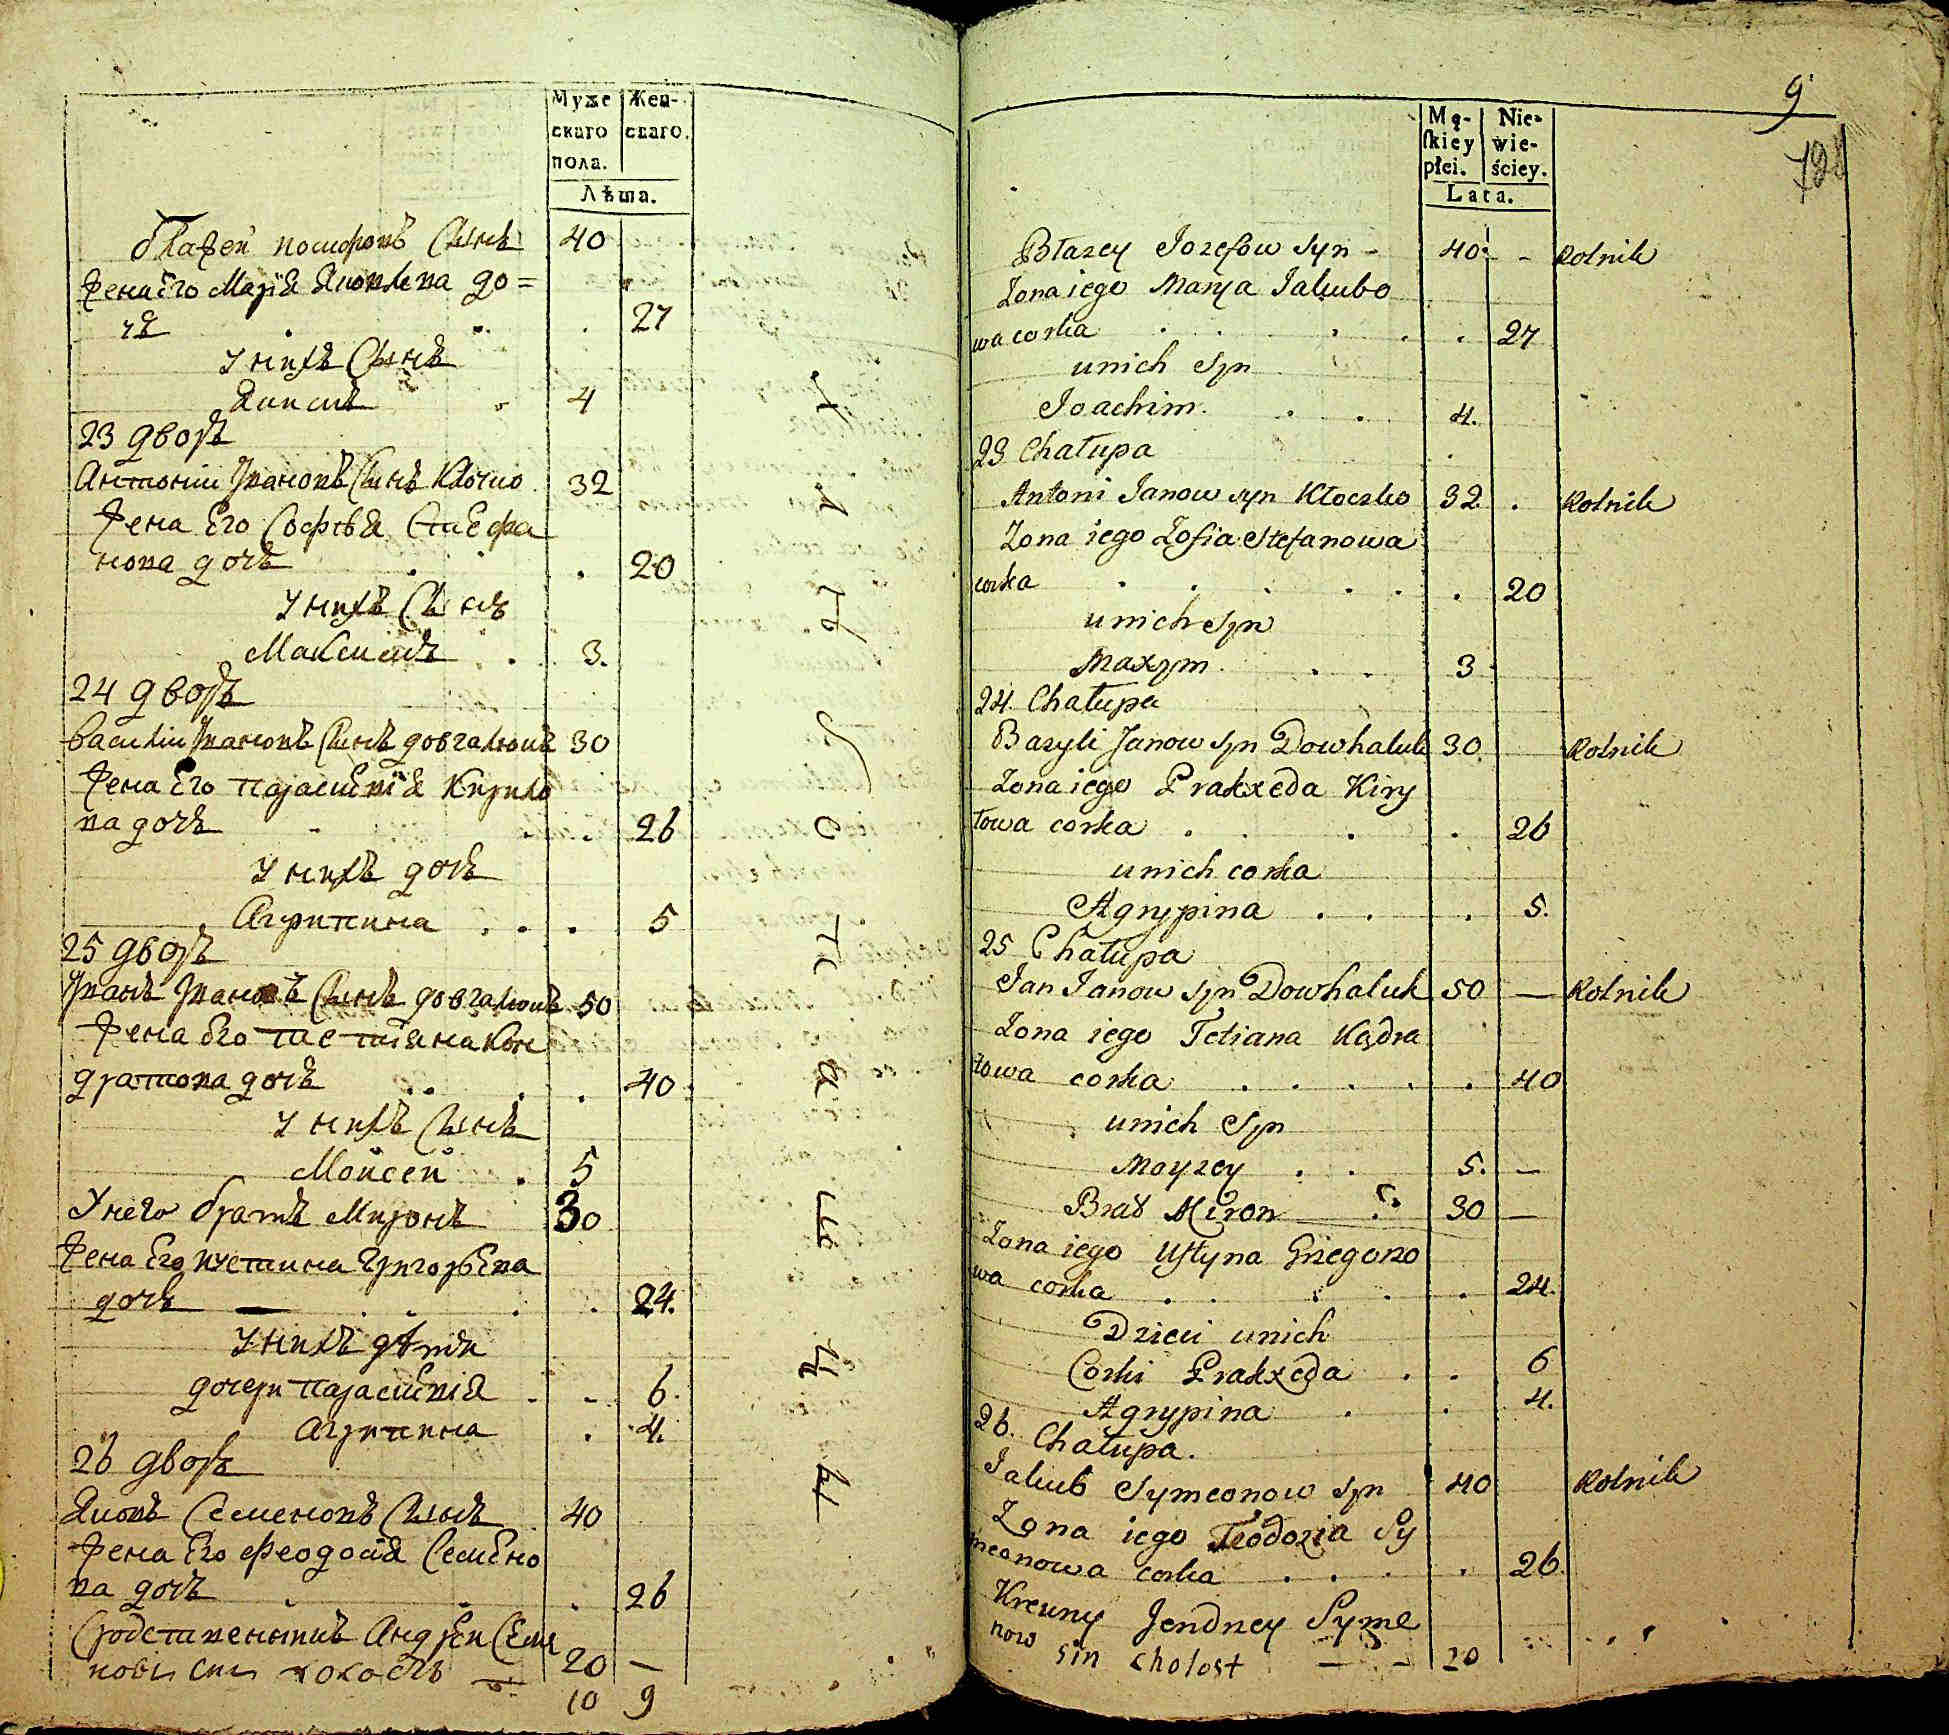 Муже
скаго
пола.
Жен-
скаго.
Лѣта.
блажей иосифовъ Сынъ 40
жена Его Марія Яковлева до=
чь . . . 27
у нихъ Сынъ
Якимъ 4
23 дворъ
Антоній Ивановъ Сынъ Клочко 32
жена Его Софѣя Стефа
нова дочь . . 20
у нихъ Сынъ
Максимъ . . 3.
24 дворъ
Василій Ивановъ Сынъ довгалюкъ 30
жена Его Парасковія Кирило
ва дочь . . 26
у нихъ дочь
Агрипина . . . 5
25 дворъ
Иванъ Ивановъ Сынъ довгалюкъ 50
жена Его Тетіяна Кон
дратова дочь . . 40
у нихъ Сынъ
Мойсей . 5
У него братъ Миронъ 30
жена Его иустина Григорьева
дочь — . . . . 24.
у нихъ дѣти
дочери Парасковія . . 6.
Агрипина . 4.
26 дворъ
Яковъ Семеновъ Сынъ 40
жена Его Феодосія Семено
ва дочь . . 26
Сродственникъ Андрей Семе
новъ Сын холостъ — 20 —
10 9
9
Mę-
skiey
płci.
Nie-
wie-
ściey.
Lata.
Błazey Jozefow Syn - 40. - Rolnik
Zona iego Marya Jakubo
wa corka . . . . . 27
unich Syn
Joachim . . 4.
23 Chałupa
Antoni Janow syn Kłoczko 32. . Rolnik
Zona iego Zofia Stefanowa
corka . . . . . . 20
unich Syn
Maxym . . 3
24. Chałupa
Bazyli Janow Syn Dowhaluk 30. Rolnik
Zona iego Prakxeda Kiry
łowa corka . . . 26
unich corka
Agrypina . . . 5.
25 Chałupa
Jan Janow Syn Dowhaluk 50 — Rolnik
Zona iego Tetiana Kądra
towa corka . . . . . 40
unich Syn
Moyzey . . 5. —
Brat Miron 30 —
Zona iego Ustyna Grzegorzo
wa corka . . . . . 24.
Dzieci unich
Corki Prakxeda . . 6
Agrypina . . 4.
26. Chałupa.
Jakub Symeonow Syn 40 Rolnik
Zona iego Teodozia Sy
meonowa corka . . . . 26
Krewny Jendrzey Syme
now sin cholost — - 20